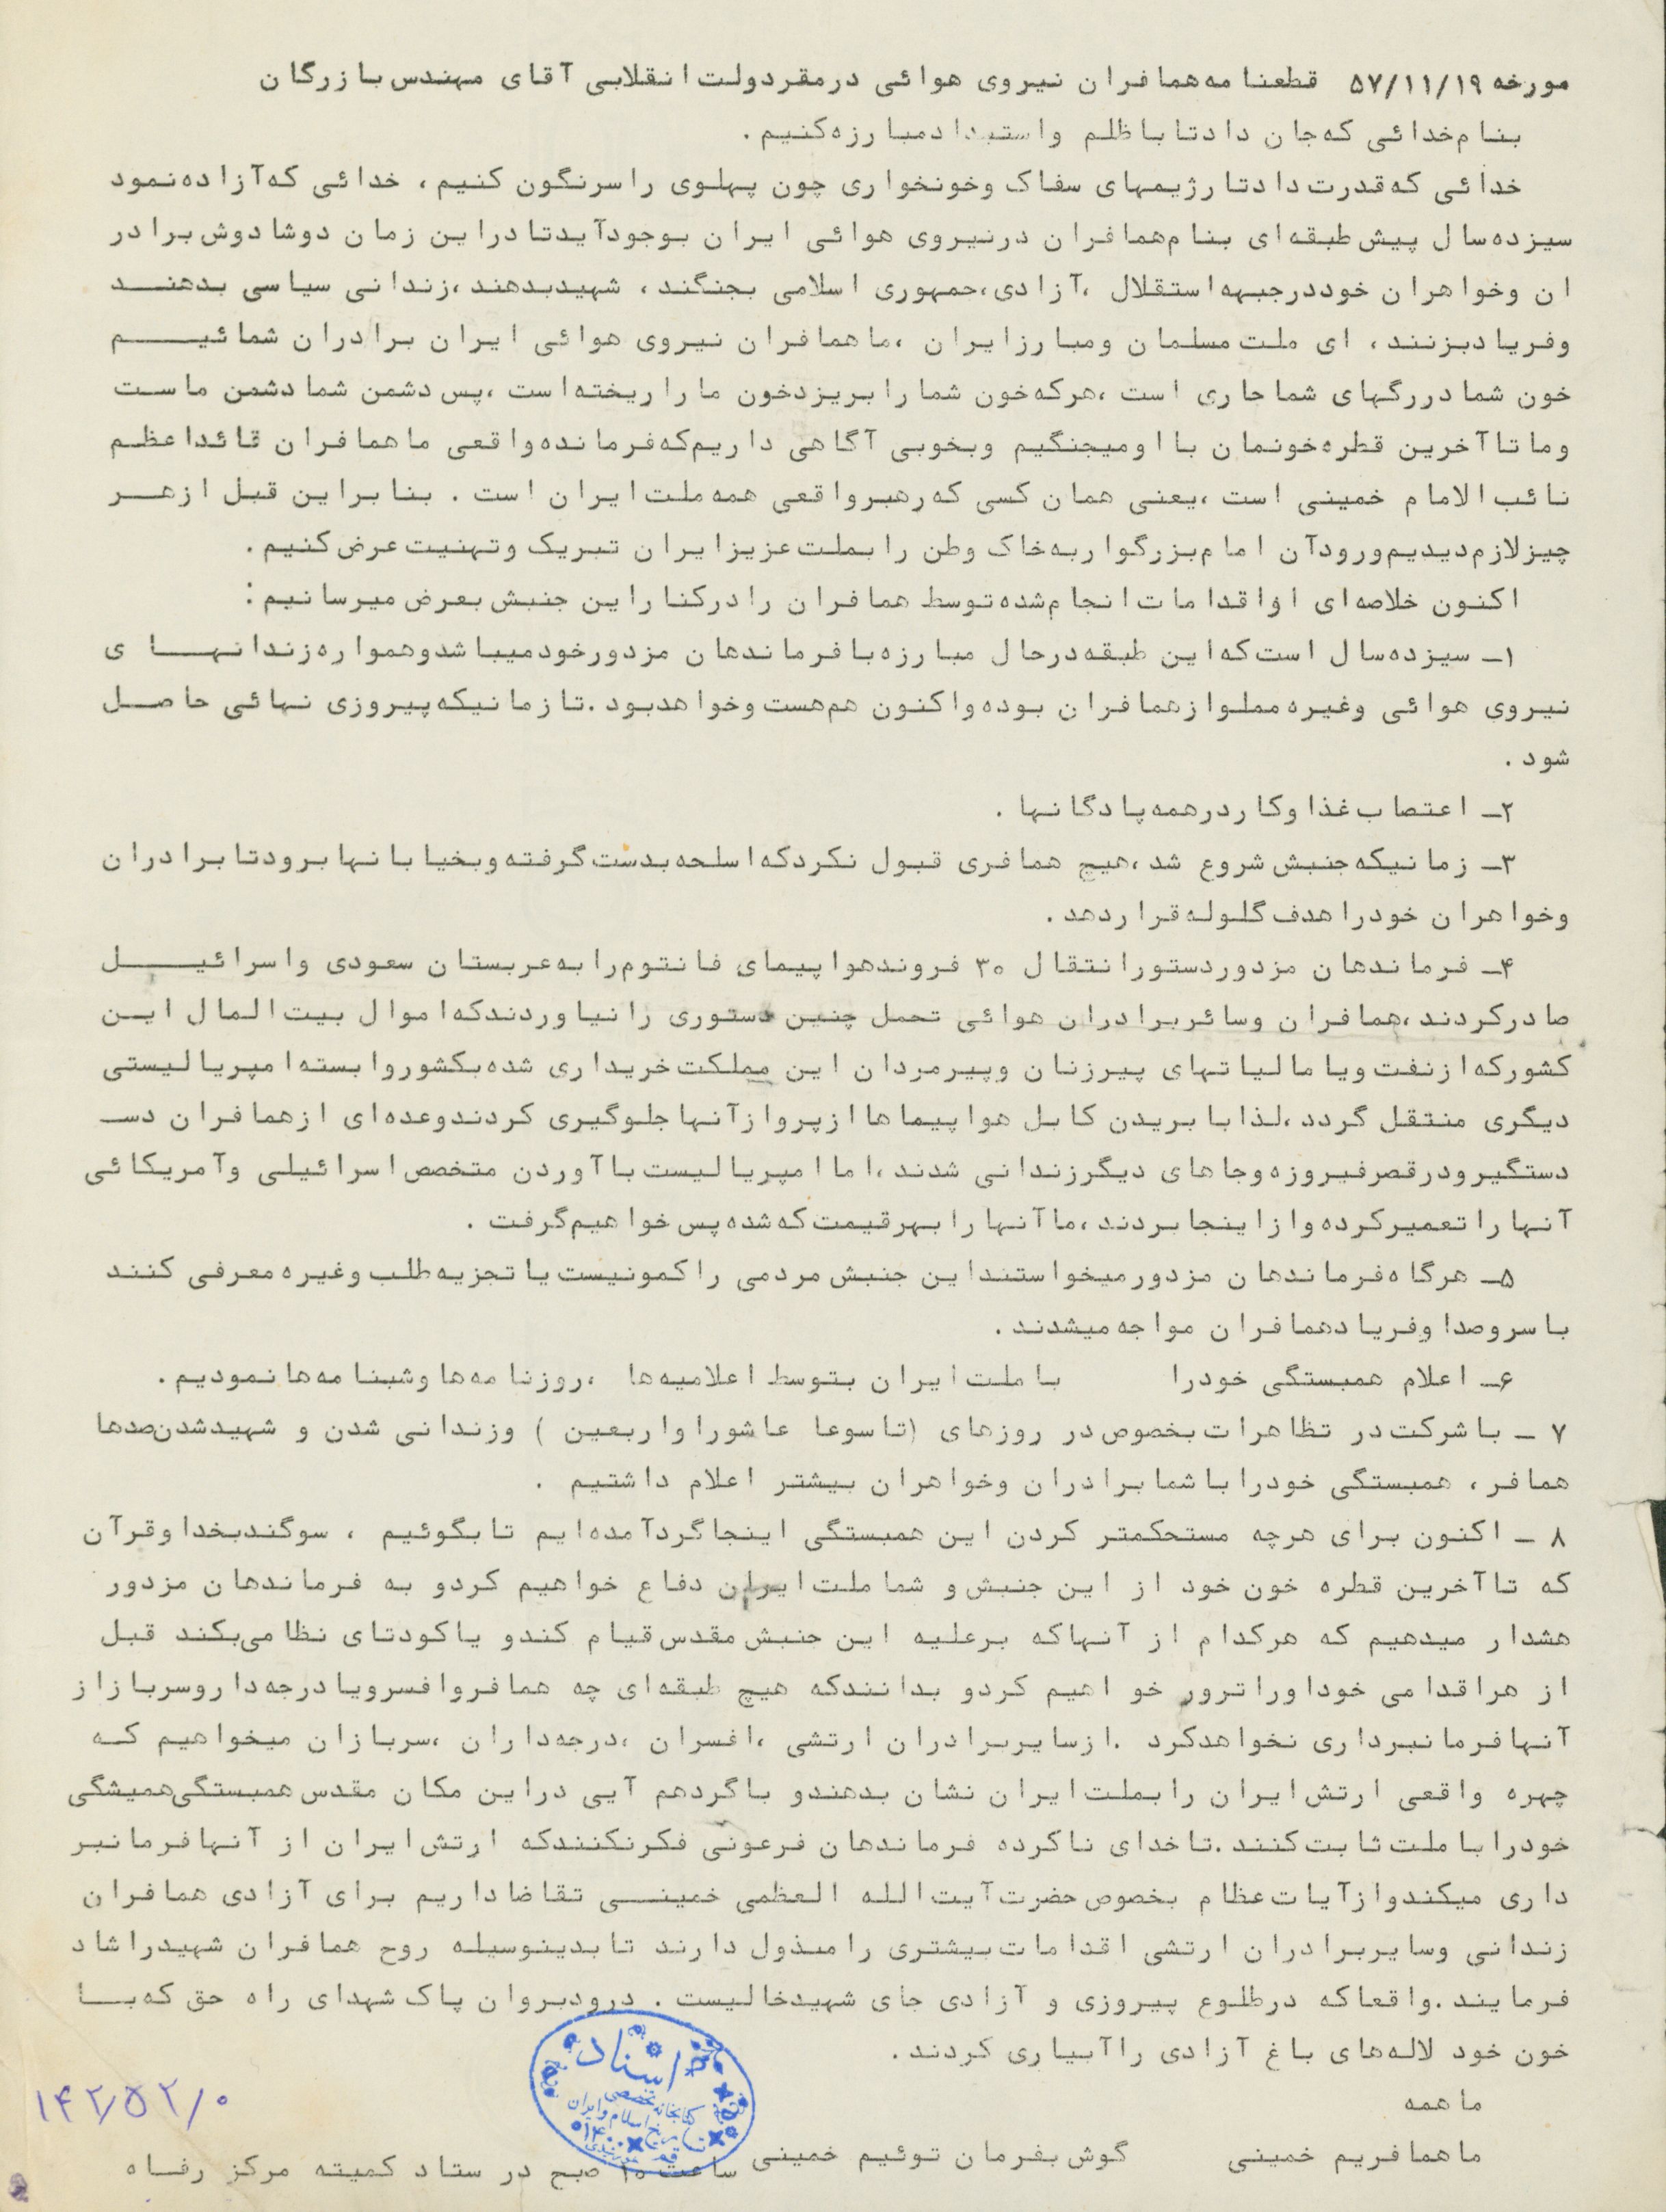 مورخه ۵۷/۱۱/۱۹ قطعنامه همافران نیروی هوائی در مقر دولت انقلابی آقای مهندس بازرگان
بنام خدائی که جان داد تا با ظلم و استبداد مبارزه کنیم .
خدائی که قدرت داد تا رژیمهای سفاک و خونخواری چون پهلوی را سرنگون کنیم ، خدائی که آزاده نمود
سیزده سال پیش طبقه‌ای بنام همافران در نیروی هوائی ایران بوجود آید تا در این زمان دوشادوش برادر
ان و خواهران خود در جبهه استقلال ،آزادی ،جمهوری اسلامی بجنگند ، شهید بدهند ،زندانی سیاسی بدهنــد
و فریاد بزنند ، ای ملت مسلمان و مبارز ایران ،ما همافران نیروی هوائی ایران برادران شمائیــــم
خون شما در رگهای شما جاری است ،هر که خون شما را بریزد خون ما را ریخته است ،پس دشمن شما دشمن ماسـت
و ما تا آخرین قطره خونمان با او میجنگیم و بخوبی آگاهی داریم که فرمانده واقعی ما همافران قائد اعظـم
نائب الامام خمینی است ،یعنی همان کسی که رهبر واقعی همه ملت ایران است . بنابراین قبل از هــر
چیز لازم دیدیم ورود آن امام بزرگوار به خاک وطن را بملت عزیز ایران تبریک و تهنیت عرض کنیم .
اکنون خلاصه‌ای از اقدامات انجام شده توسط همافران را در کنار این جنبش بعرض میرسانیم :
۱ـ سیزده سال است که این طبقه در حال مبارزه با فرماندهان مزدور خود میباشد و همواره زندانهــا ی
نیروی هوائی و غیره مملو از همافران بوده و اکنون هم هست و خواهد بود .تا زمانیکه پیروزی نهائی حاصـل
شود .
۲ـ اعتصاب غذا و کار در همه پادگانها .
۳ـ زمانیکه جنبش شروع شد ،هیچ همافری قبول نکرد که اسلحه بدست گرفته و بخیابانها برود تا برادران
و خواهران خود را هدف گلوله قرار دهد .
۴ـ فرماندهان مزدور دستور انتقال ۳۰ فروند هواپیمای فانتوم را به عربستان سعودی و اسرائیــــل
صادر کردند ،همافران و سائر برادران هوائی تحمل چنین دستوری را نیاوردند که اموال بیت المال ایـن
کشور که از نفت و یا مالیاتهای پیرزنان و پیرمردان این مملکت خریداری شده بکشور وابسته امپریالیستی
دیگری منتقل گردد ،لذا با بریدن کابل هواپیماها از پرواز آنها جلوگیری کردند و عده‌ای از همافران دســ
دستگیر و در قصر فیروزه و جاهای دیگر زندانی شدند ،اما امپریالیست با آوردن متخصص اسرائیلی و آمریکائی
آنها را تعمیر کرده و از اینجا بردند ،ما آنها را بهر قیمت که شده پس خواهیم گرفت .
۵ـ هر گاه فرماندهان مزدور میخواستند این جنبش مردمی را کمونیست یا تجزیه طلب و غیره معرفی کنند
با سر و صدا و فریاد همافران مواجه میشدند .
۶ـ اعلام همبستگی خود را با ملت ایران بتوسط اعلامیه‌ها ،روزنامه‌ها و شبنامه‌ها نمودیم .
۷ ـ با شرکت در تظاهرات بخصوص در روزهای (تاسوعا عاشورا و اربعین ) و زندانی شدن و شهید شدن صدها
همافر ، همبستگی خود را با شما برادران و خواهران بیشتر اعلام داشتیم .
۸ ـ اکنون برای هر چه مستحکمتر کردن این همبستگی اینجا گرد آمده‌ایم تا بگوئیم ، سوگند بخدا و قرآن
که تا آخرین قطره خون خود از این جنبش و شما ملت ایران دفاع خواهیم کرد و به فرماندهان مزدور
هشدار میدهیم که هر کدام از آنها که بر علیه این جنبش مقدس قیام کند و یا کودتای نظامی بکند قبل
از هر اقدامی خود او را ترور خو اهیم کرد و بدانند که هیچ طبقه‌ای چه همافر و افسر و یا درجه دار و سرباز از
آنها فرمانبرداری نخواهد کرد .از سایر برادران ارتشی ،افسران ،درجه‌داران ،سربازان میخواهیم کـه
چهره واقعی ارتش ایران را بملت ایران نشان بدهند و با گردهم آیی در این مکان مقدس همبستگی همیشگی
خود را با ملت ثابت کنند .تا خدای ناکرده فرماندهان فرعونی فکر نکنند که ارتش ایران از آنها فرمانبر
داری میکند و از آیات عظام بخصوص حضرت آیت الله العظمی خمینـی تقاضا داریم برای آزادی همافران
زندانی و سایر برادران ارتشی اقدامات بیشتری را مبذول دارند تا بدینوسیله روح همافران شهید را شاد
فرمایند .واقعا که در طلوع پیروزی و آزادی جای شهید خالیست . درود بروان پاک شهدای راه حق که بــا
خون خود لاله‌های باغ آزادی را آبیاری کردند .
ما همه
ما همافریم خمینی گوش بفرمان توئیم خمینی ساعت ۱۰ صبح در ستاد کمیته مرکز رفـاه
اسناد
کتابخانه تخصصی
تاریخ اسلام و ایران